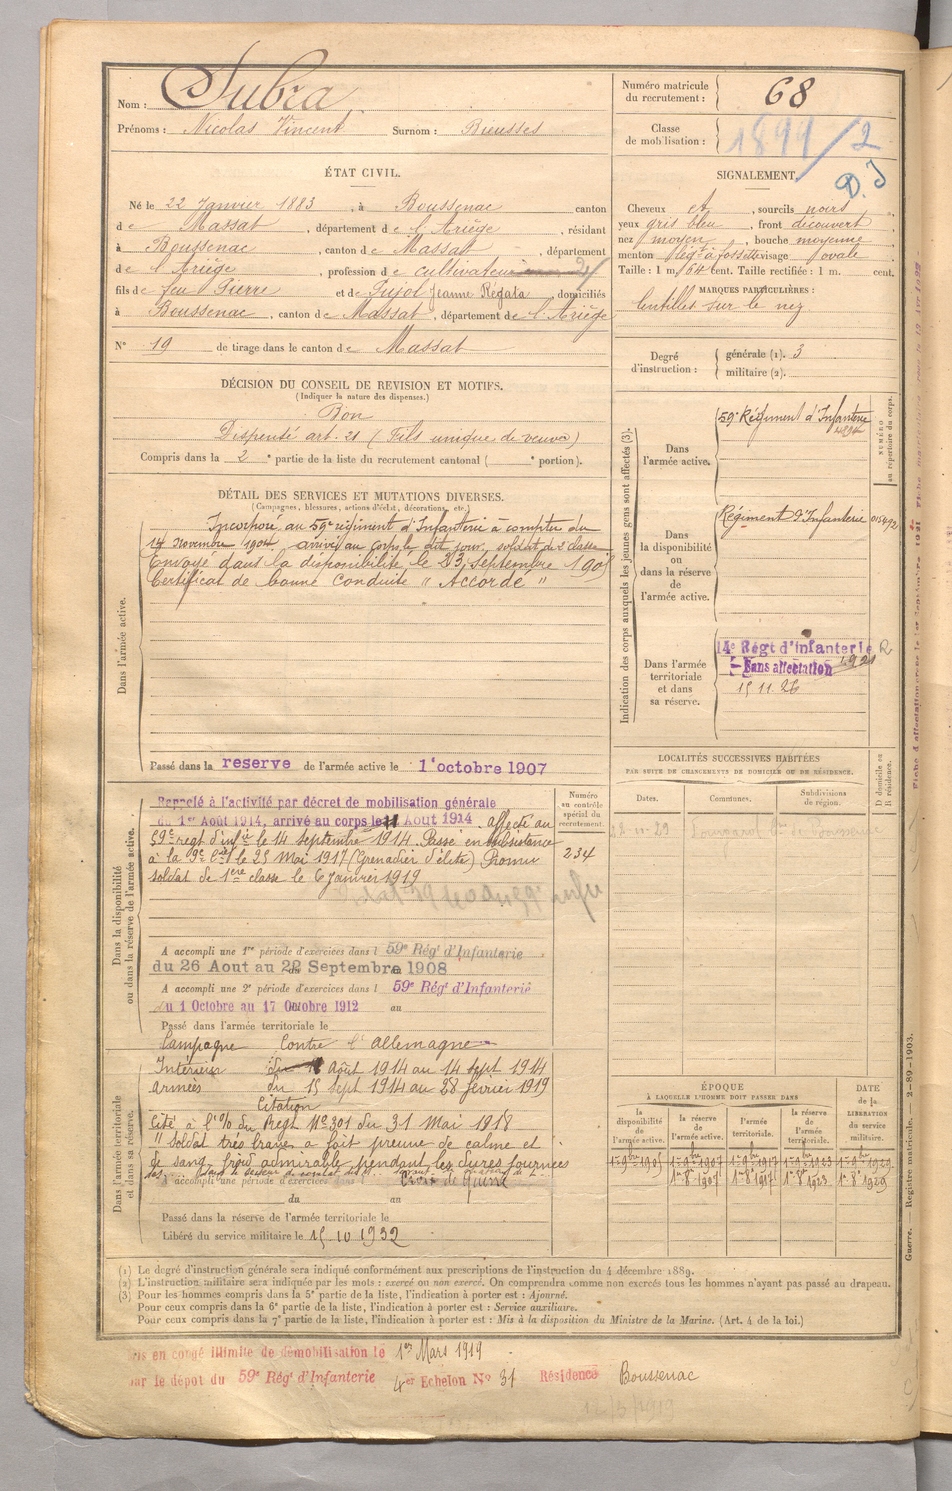 Nom : Subra
Prénoms : Nicolas Vincent Surnom : Bieusses
Numéro matricule du recrutement : 68
Classe de mobilisation : 1899/2
D.J
ÉTAT CIVIL.
Né le 22 Janvier 1883, à Boussenac canton
de Massat, département de l'Ariège, résidant
à Boussenac, canton de Massat, département
de l'Ariège, profession de cultivateur
fils de feu Pierre et de Pujol Jeanne Régata, domiciliés
à Boussenac, canton de Massat, département de l'Ariège
N° 19 de tirage dans le canton de Massat
SIGNALEMENT.
Cheveux et, sourcils noirs,
yeux gris bleu, front découvert,
nez moyen, bouche moyenne,
menton à fossette visage ovale.
Taille : 1 m. 64 cent. Taille rectifiée : 1 m. cent.
MARQUES PARTICULIÈRES :
lentilles sur le nez
Degré d'instruction : générale (1). 3
militaire (2).
DÉCISION DU CONSEIL DE REVISION ET MOTIFS.
(Indiquer la nature des dispenses.)
Bon
Dispensé art. 21 (Fils unique de veuve)
Compris dans la 2e partie de la liste du recrutement cantonal ( e portion).
DÉTAIL DES SERVICES ET MUTATIONS DIVERSES.
(Campagnes, blessures, actions d'éclat, décorations, etc.)
Dans l'armée active.
Incorporé au 59e régiment d'Infanterie à compter du
14 novembre 1904 arrivé au corps le dit jour, soldat de 2e classe
Envoyé dans la disponibilité le 23 septembre 1905
Certificat de bonne conduite " Accordé "
Passé dans la reserve de l'armée active le 1er octobre 1907
Indication des corps auxquels les jeunes gens sont affectés (3).
NUMÉRO au répertoire du corps.
Dans l'armée active.
59e Régiment d'Infanterie
Dans la disponibilité ou dans la réserve de l'armée active.
Régiment d'Infanterie 015492
Dans l'armée territoriale et dans sa réserve.
14e Régt d'infanterie R
Sans affectation 1921
15.11.26
LOCALITÉS SUCCESSIVES HABITÉES
PAR SUITE DE CHANGEMENTS DE DOMICILE OU DE RÉSIDENCE.
Dates. Communes. Subdivisions de région. D domicile ou R résidence.
Dans la disponibilité ou dans la réserve de l'armée active.
Numéro au contrôle spécial du recrutement.
234
Rappelé à l'activité par décret de mobilisation générale
du 1er Août 1914, arrivé au corps le 11 Aout 1914 affecté au
59e regt d'infie le 14 septembre 1914. Passé en subsistance
à la 9e Cie le 25 Mai 1917 (Grenadier d'élite) Promu
soldat de 1ère classe le 6 janvier 1919
A accompli une 1re période d'exercices dans l 59e Régt d'Infanterie
du 26 Aout au 22 Septembre 1908
A accompli une 2e période d'exercices dans l 59e Régt d'Infanterie
du 1 Octobre au 17 Octobre 1912 au
Passé dans l'armée territoriale le
Campagne Contre l'Allemagne
Dans l'armée territoriale et dans sa réserve.
Intérieur du 11 Août 1914 au 14 sept 1914
armées du 15 sept 1914 au 28 février 1919
Citation
Cité à l'O/ du Regt No 301 du 31 Mai 1918
" Soldat très brave, a fait preuve de calme et
de sang froid admirable pendant les dures journées
A accompli une période d'exercices
Croix de guerre
du au
Passé dans la réserve de l'armée territoriale le
Libéré du service militaire le 15.10 1932
ÉPOQUE
À LAQUELLE L'HOMME DOIT PASSER DANS
la disponibilité de l'armée active. la réserve de l'armée active. l'armée territoriale. la réserve de l'armée territoriale. DATE de la LIBÉRATION du service militaire.
1er 9bre 1905 1er 9bre 1907 1er 9bre 1917 1er 9bre 1923 1er 9bre 1929
1er 8bre 1907 1er 8bre 1917 1er 8bre 1923 1er 8bre 1929
(1) Le degré d'instruction générale sera indiqué conformément aux prescriptions de l'instruction du 4 décembre 1889.
(2) L'instruction militaire sera indiquée par les mots : exercé ou non exercé. On comprendra comme non exercés tous les hommes n'ayant pas passé au drapeau.
(3) Pour les hommes compris dans la 5e partie de la liste, l'indication à porter est : Ajourné.
Pour ceux compris dans la 6e partie de la liste, l'indication à porter est : Service auxiliaire.
Pour ceux compris dans la 7e partie de la liste, l'indication à porter est : Mis à la disposition du Ministre de la Marine. (Art. 4 de la loi.)
Guerre. — Registre matricule. — 2-89-1903.
en congé illimité de démobilisation le 1er Mars 1919
par le dépot du 59e Régt d'Infanterie 4er Echelon N° 31 Résidence Boussenac
12/3/1919